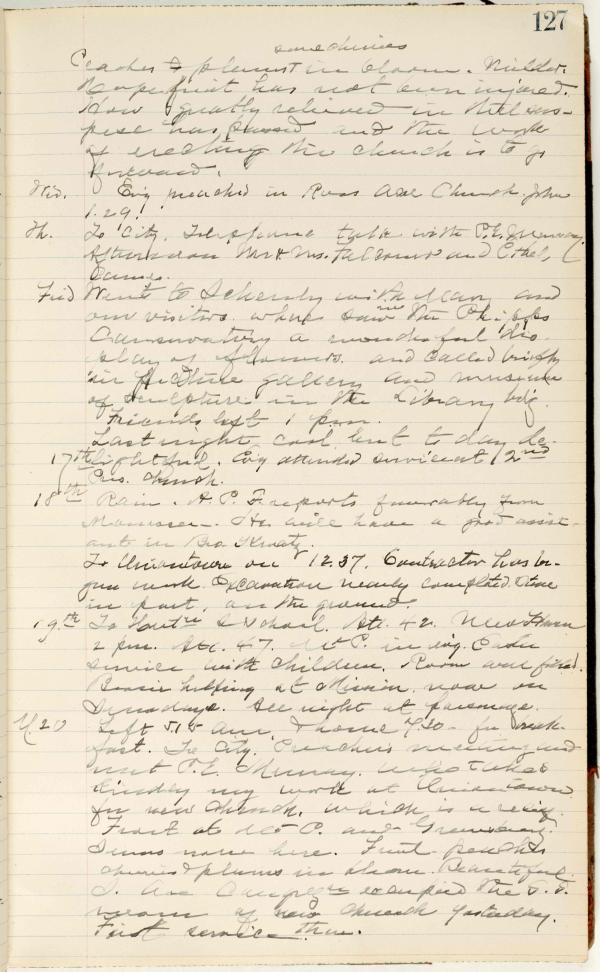 127
some cherries
Peaches & plums in bloom. Milder.
Hope fruit has not been injured.
How greatly relieved in that sus-
pense has passed and the work
of erecting the church is to go
forward.
Wed. Evg preached in Ross Ave Church. John
1.29.
Th. To City. Telephone talk with P.E. Murray.
Afternoon Mr & Mrs. Falconer and Ethel,
James.
Frid Went to Schenly with Mary and
our visitors where saw the Phipps
Conservatory a wonderful dis-
play of flowers. and called briefly
in picture gallery and museum
of sculpture in the Library bdg
Friends left 1 p.m.
Last night cool but to day de-
17th lightful. Evg attended service at 2nd
Pres. Church.
18th Rain. A.P. reports favorably from
He will have a good assist-
ant in Bro
To Uniontown on 12.37. Contractor has be-
gun work. Excavation nearly completed. Stone
in part, on the ground.
19th To S School. Att. 42. New Haven
2 p.m. Att. 47. Mt P. in evg.
service with children. Room was filled.
Bessie helping at Mission now on
Sundays. All night at parsonage.
M. 20 Left 5.15 am, & home 7.30 for break-
fast. To City. Preachers meeting and
met P.E. Murray. who takes
kindly my work at Uniontown
for new church. which is a
Frost at Mt P. and Greensburg.
none here. Fruit- peaches
cherries & plums in bloom. Beautiful.
Ave Congrn occupied the S.S.
room of new church yesterday.
First service there.